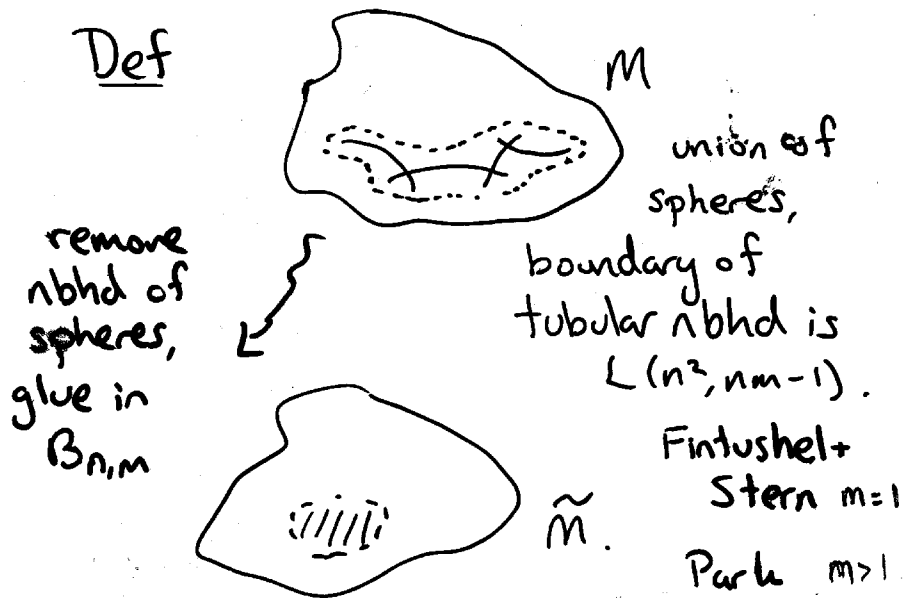 Def
M
union of
spheres,
boundary of
tubular nbhd is
L(n², nm-1).
remove
nbhd of
spheres,
glue in
B_{n,m}
M̃.
Fintushel+
Stern m=1
Park m>1